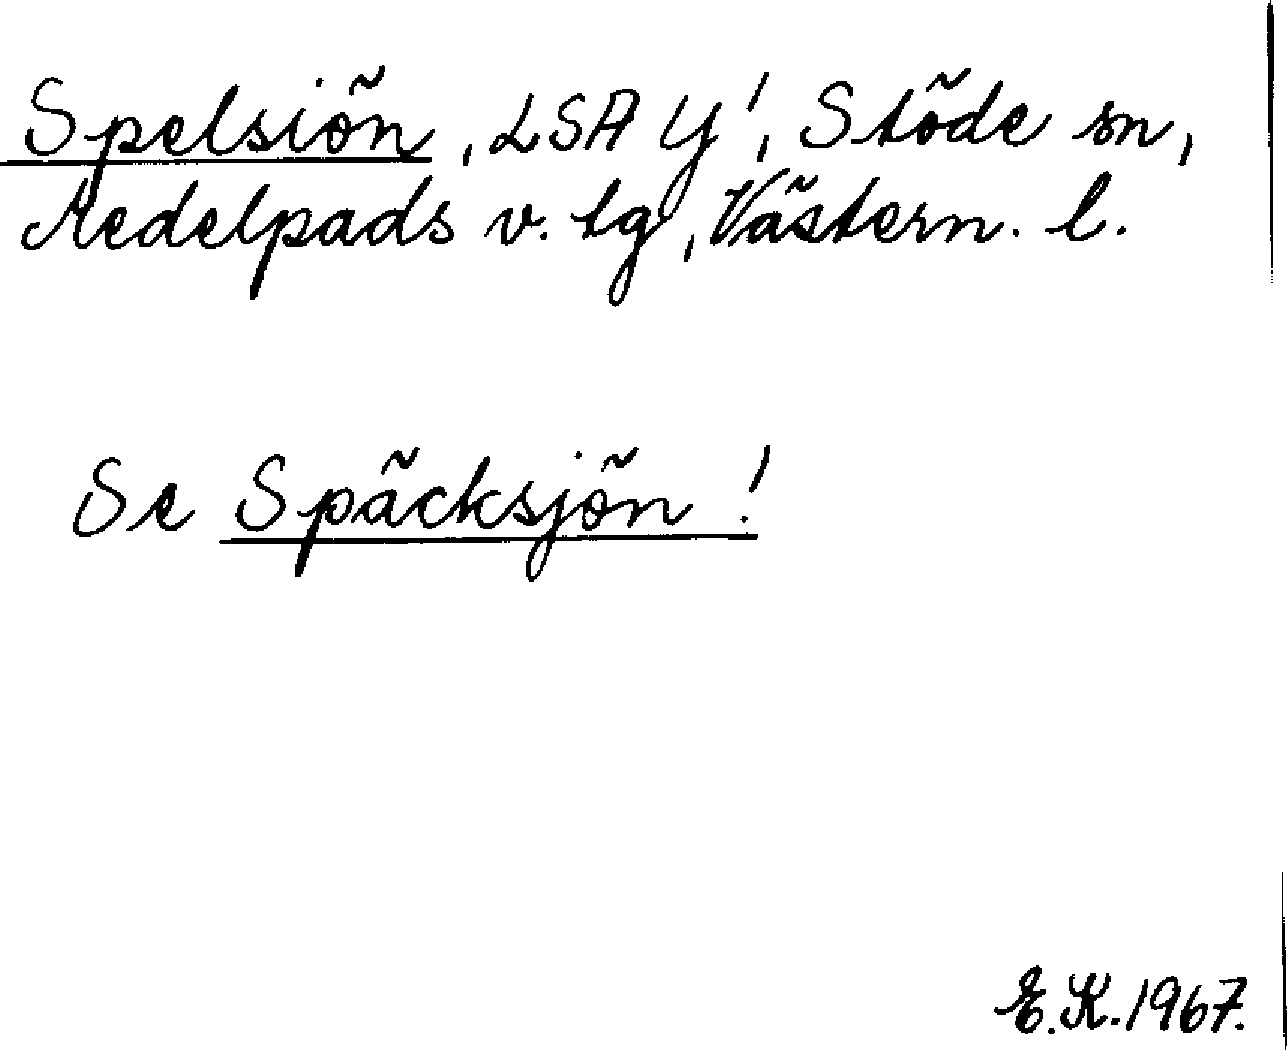 Spelsiön, LSA Y', Stöde sn,
Medelpads v. tg, Västern. l.
Se Späcksjön!
E.K. 1967.